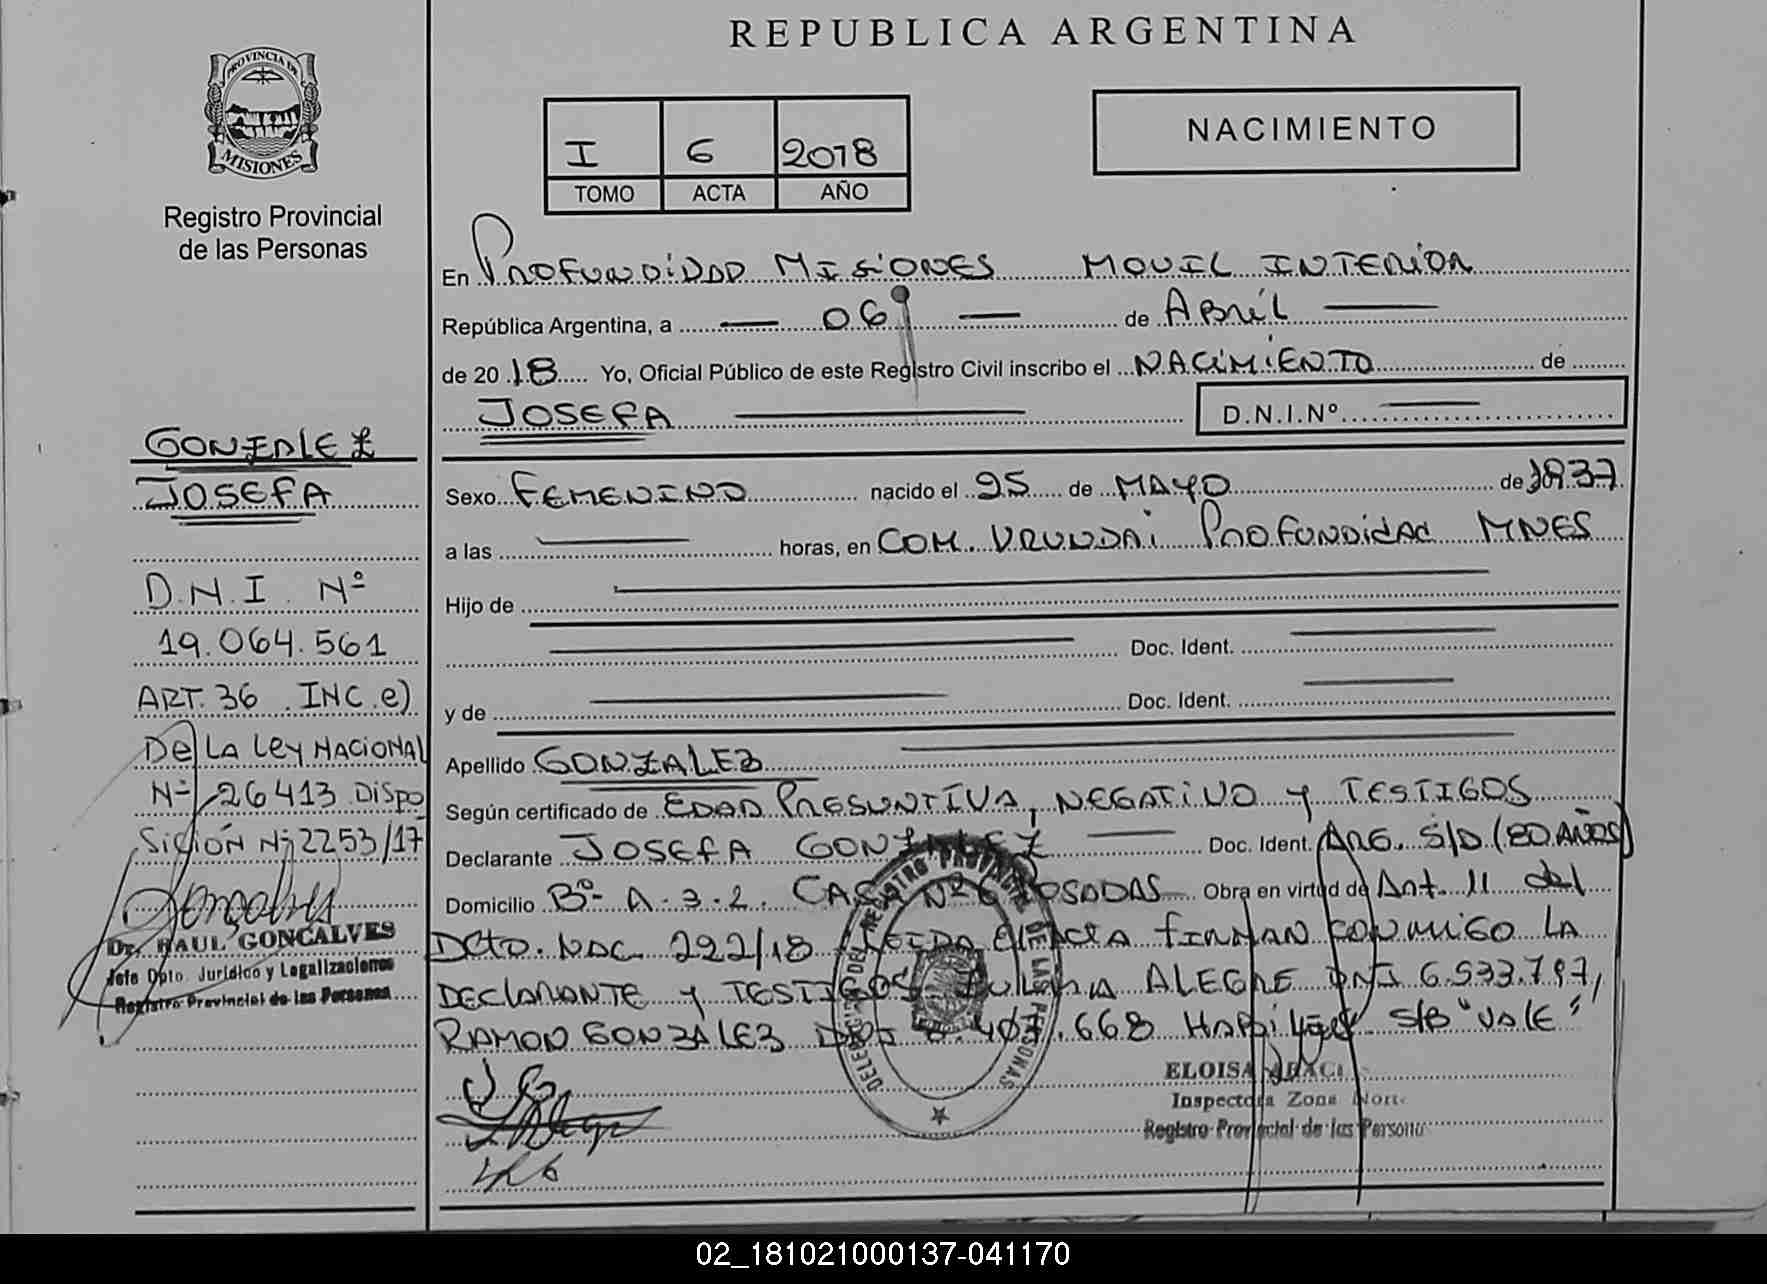 REPUBLICA ARGENTINA
PROVINCIA DE
MISIONES
Registro Provincial
de las Personas
I 6 2018
TOMO ACTA AÑO
NACIMIENTO
En PROFUNDIDAD MISIONES MOVIL INTERIOR
República Argentina, a 06 de ABRIL
de 2018 Yo, Oficial Público de este Registro Civil inscribo el NACIMIENTO de
JOSEFA D.N.I.Nº
GONZALEZ
JOSEFA
D.N.I. Nº
19.064.561
ART. 36. INC. e)
De LA Ley NACIONAL
Nº 26413 DISPO
SICIÓN Nº 2253/17
Dr. RAUL GONCALVES
Jefe Dpto. Jurídico y Legalizaciones
Registro Provincial de las Personas
Sexo FEMENINO nacido el 25 de MAYO de 1937
a las horas, en COM. URUNDAI PROFUNDIDAD MNES
Hijo de
Doc. Ident.
y de Doc. Ident.
Apellido GONZALEZ
Según certificado de EDAD PRESUNTIVA, NEGATIVO y TESTIGOS
Declarante JOSEFA GONZALEZ Doc. Ident. ARG. S/D (80 AÑOS)
Domicilio Bº A-3-2. CASA Nº 6 POSADAS Obra en virtud de Art. 11 del
Dcto. NAC. 222/18 LEIDA EL ACTA FIRMAN CONMIGO LA
DECLARANTE y TESTIGOS ALEGRE DNI 6.933.797,
RAMON GONZALEZ DNI 668 S/B "VALE"
DELEGACIO DEL REGISTRO PROVINCIAL DE LAS PERSONAS
ELOISA
Inspectora Zona Norte
Registro Provincial de las Personas
02_181021000137-041170